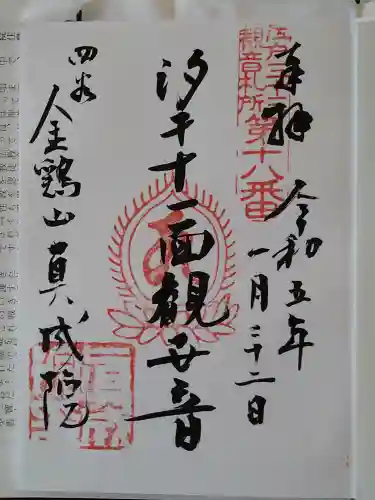 奉拝
江戸三十三
観音札所第十八番
令和五年
一月二十二日
汐干十一面観世音
四谷
金鶏山真成院